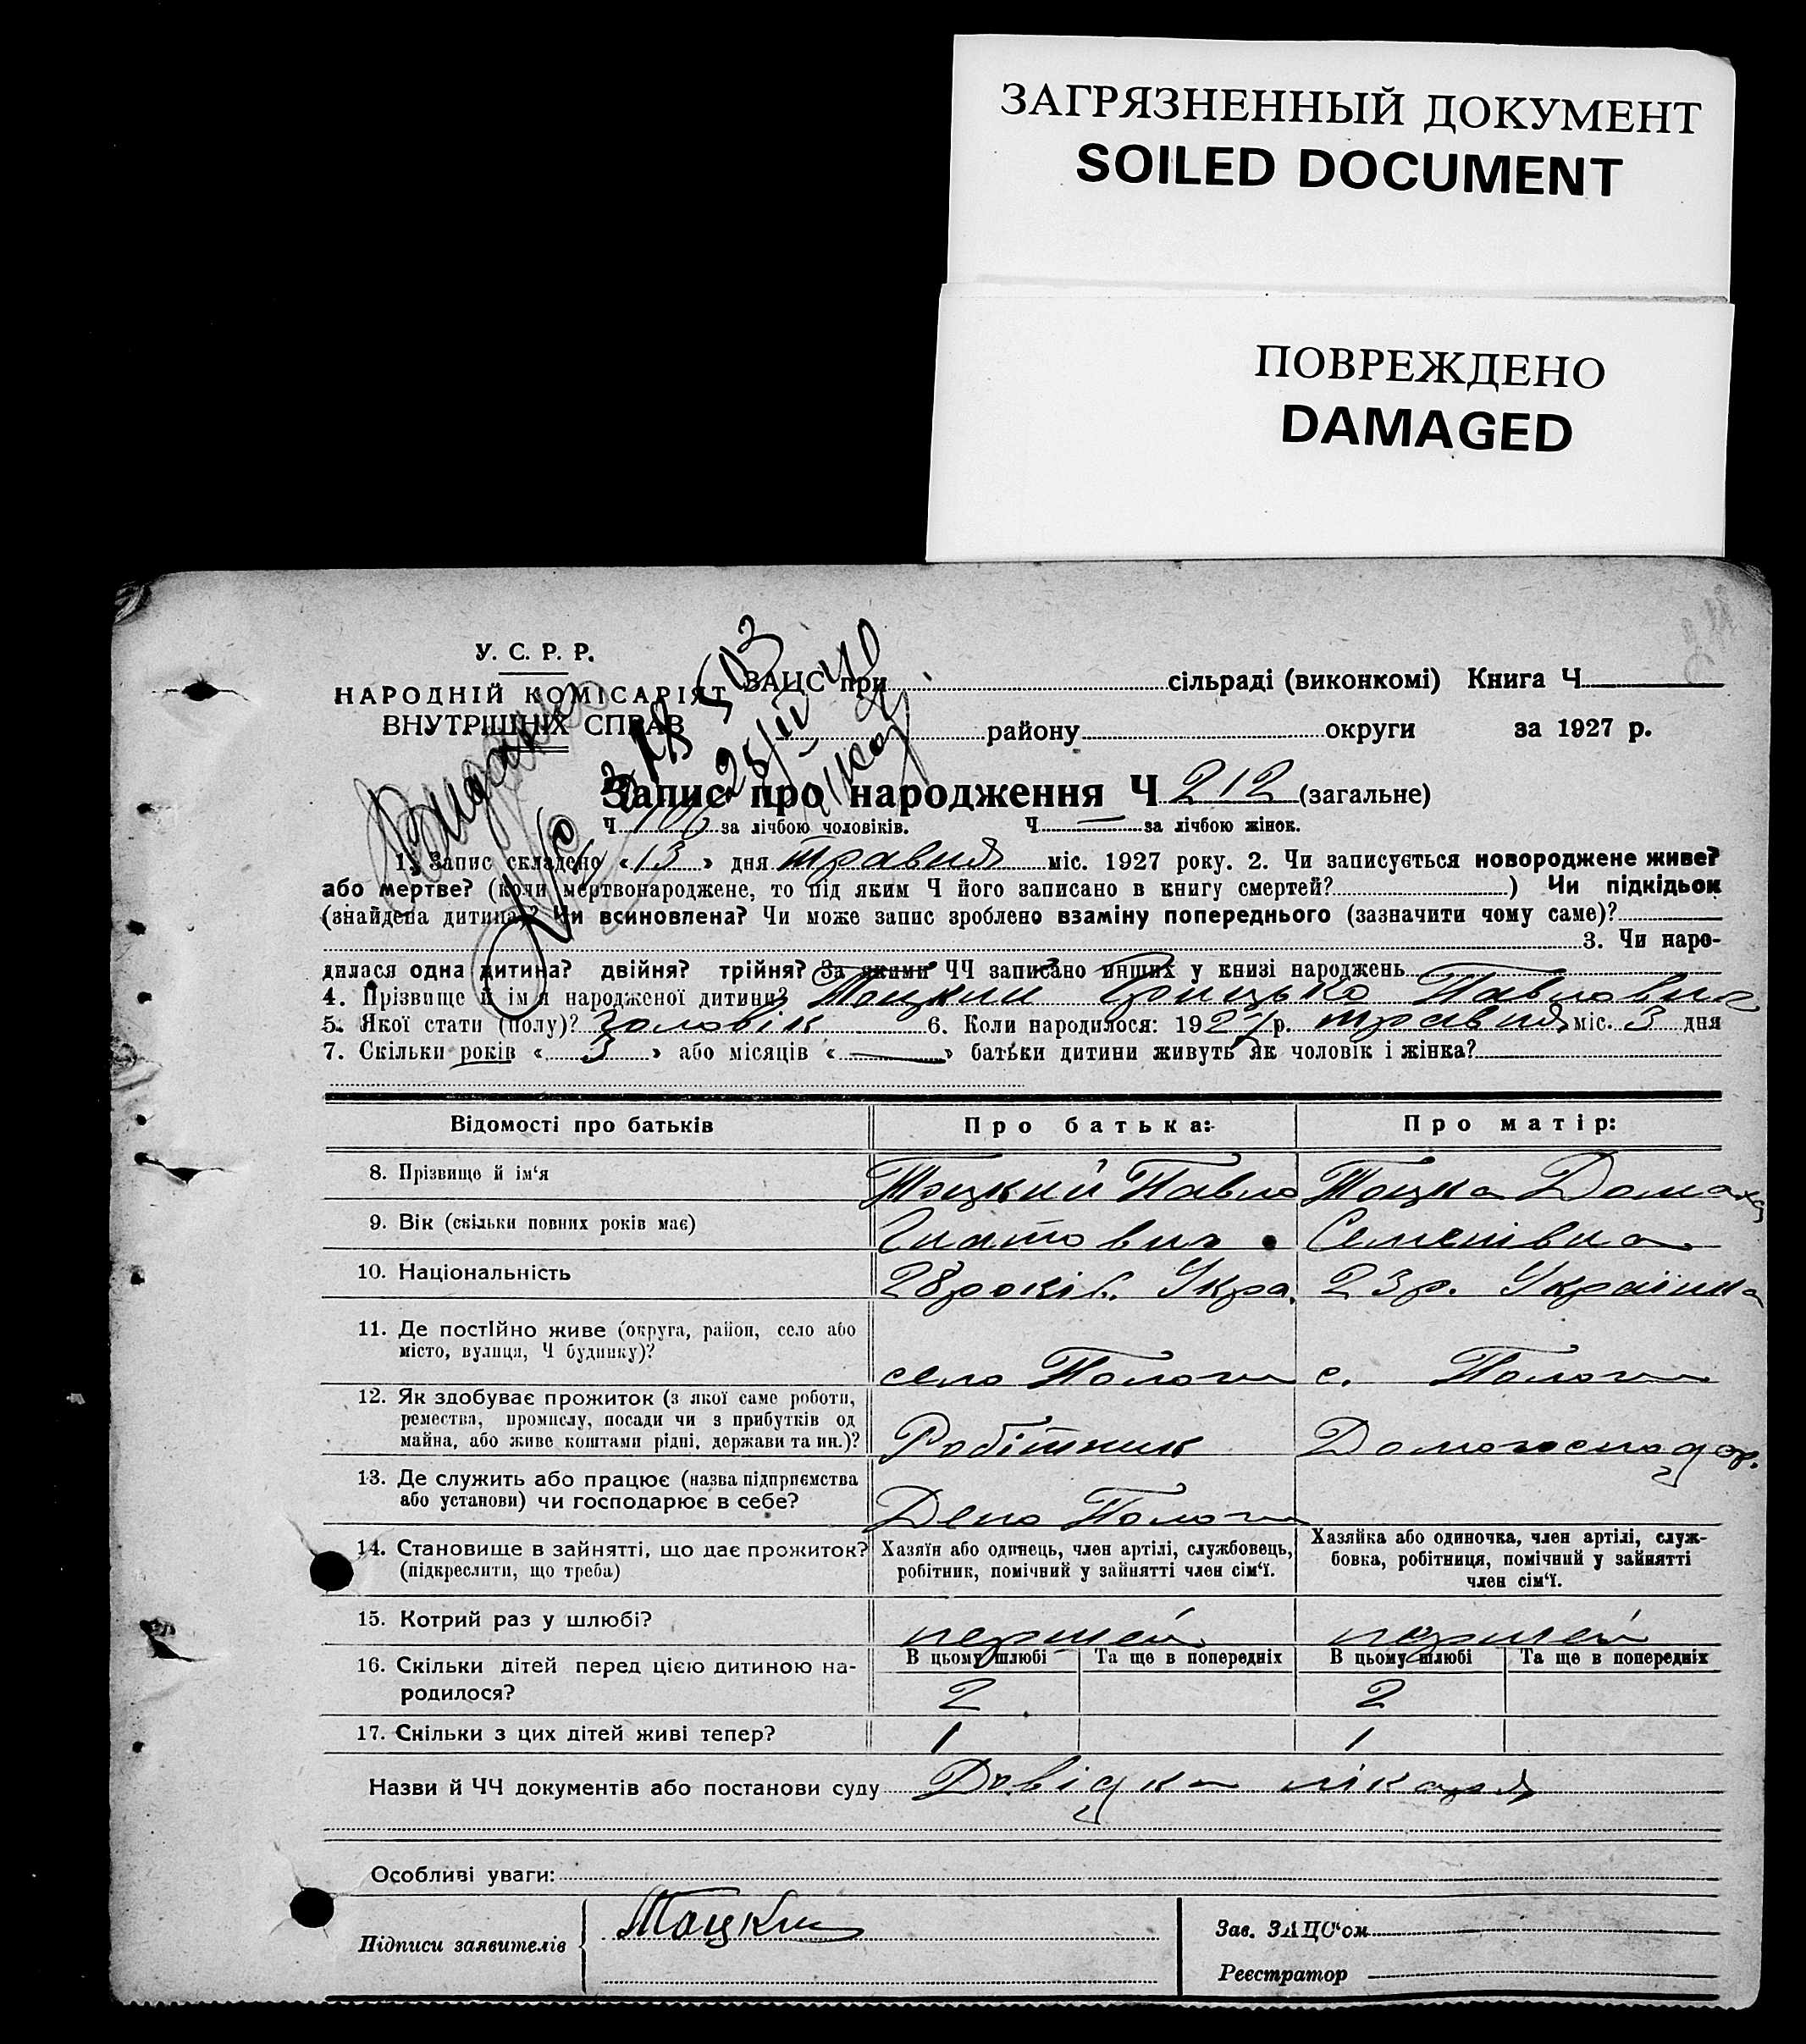 ЗАГРЯЗНЕННЫЙ ДОКУМЕНТ
SOILED DOCUMENT
ПОВРЕЖДЕНО
DAMAGED
У. С. Р. Р.
НАРОДНІЙ КОМІСАРІЯТ
ВНУТРІШНІХ СПРАВ
ЗАЦС при сільраді (виконкомі) Книга Ч
району округи за 1927 р.
Запис про народження Ч 212 (загальне)
Ч за лічбою чоловіків. Ч — за лічбою жінок.
1. Запис складено « 13 » дня травня міс. 1927 року. 2. Чи записується новороджене живе?
або мертве? (коли мертвонароджене, то під яким Ч його записано в книгу смертей? ) Чи підкідьок
(знайдена дитина)? Чи всиновлена? Чи може запис зроблено взаміну попереднього (зазначити чому саме)?
3. Чи наро-
дилася одна дитина? двійня? трійня? За якими ЧЧ записано инших у книзі народжень
4. Прізвище й ім'я народженої дитини? Тоцкий Грицько Павлович
5. Якої стати (полу)? чоловік 6. Коли народилося: 1927 р. травня міс. 3 дня
7. Скільки років « 3 » або місяців « — » батьки дитини живуть як чоловік і жінка?
Відомості про батьків Про батька: Про матір:
8. Прізвище й ім‘я Тоцкий Павло Тоцка Домаха
9. Вік (скільки повних років має) Гнатович Семенівна
10. Національність 28 років. Укра. 23 р. Українка
11. Де постійно живе (округа, район, село або
місто, вулиця, Ч будинку)? село Пологи с. Пологи
12. Як здобуває прожиток (з якої саме роботи,
ремества, промислу, посади чи з прибутків од
майна, або живе коштами рідні, держави та ин.)? Робітник Домогосподар.
13. Де служить або працює (назва підприємства
або установи) чи господарює в себе? Депо Пологи
14. Становище в зайнятті, що дає прожиток? Хазяїн або одинець, член артілі, службовець, Хазяйка або одиночка, член артілі, служ-
(підкреслити, що треба) робітник, помічний у зайнятті член сім‘ї. бовка, робітниця, помічний у зайнятті
член сім‘ї.
15. Котрий раз у шлюбі? першей першей
16. Скільки дітей перед цією дитиною на- В цьому шлюбі Та ще в попередніх В цьому шлюбі Та ще в попередніх
родилося? 2 2
17. Скільки з цих дітей живі тепер? 1 1
Назви й ЧЧ документів або постанови суду Довідка лікаря
Особливі уваги:
Підписи заявителів Тоцкий
Зав. ЗАЦС‘ом
Реєстратор